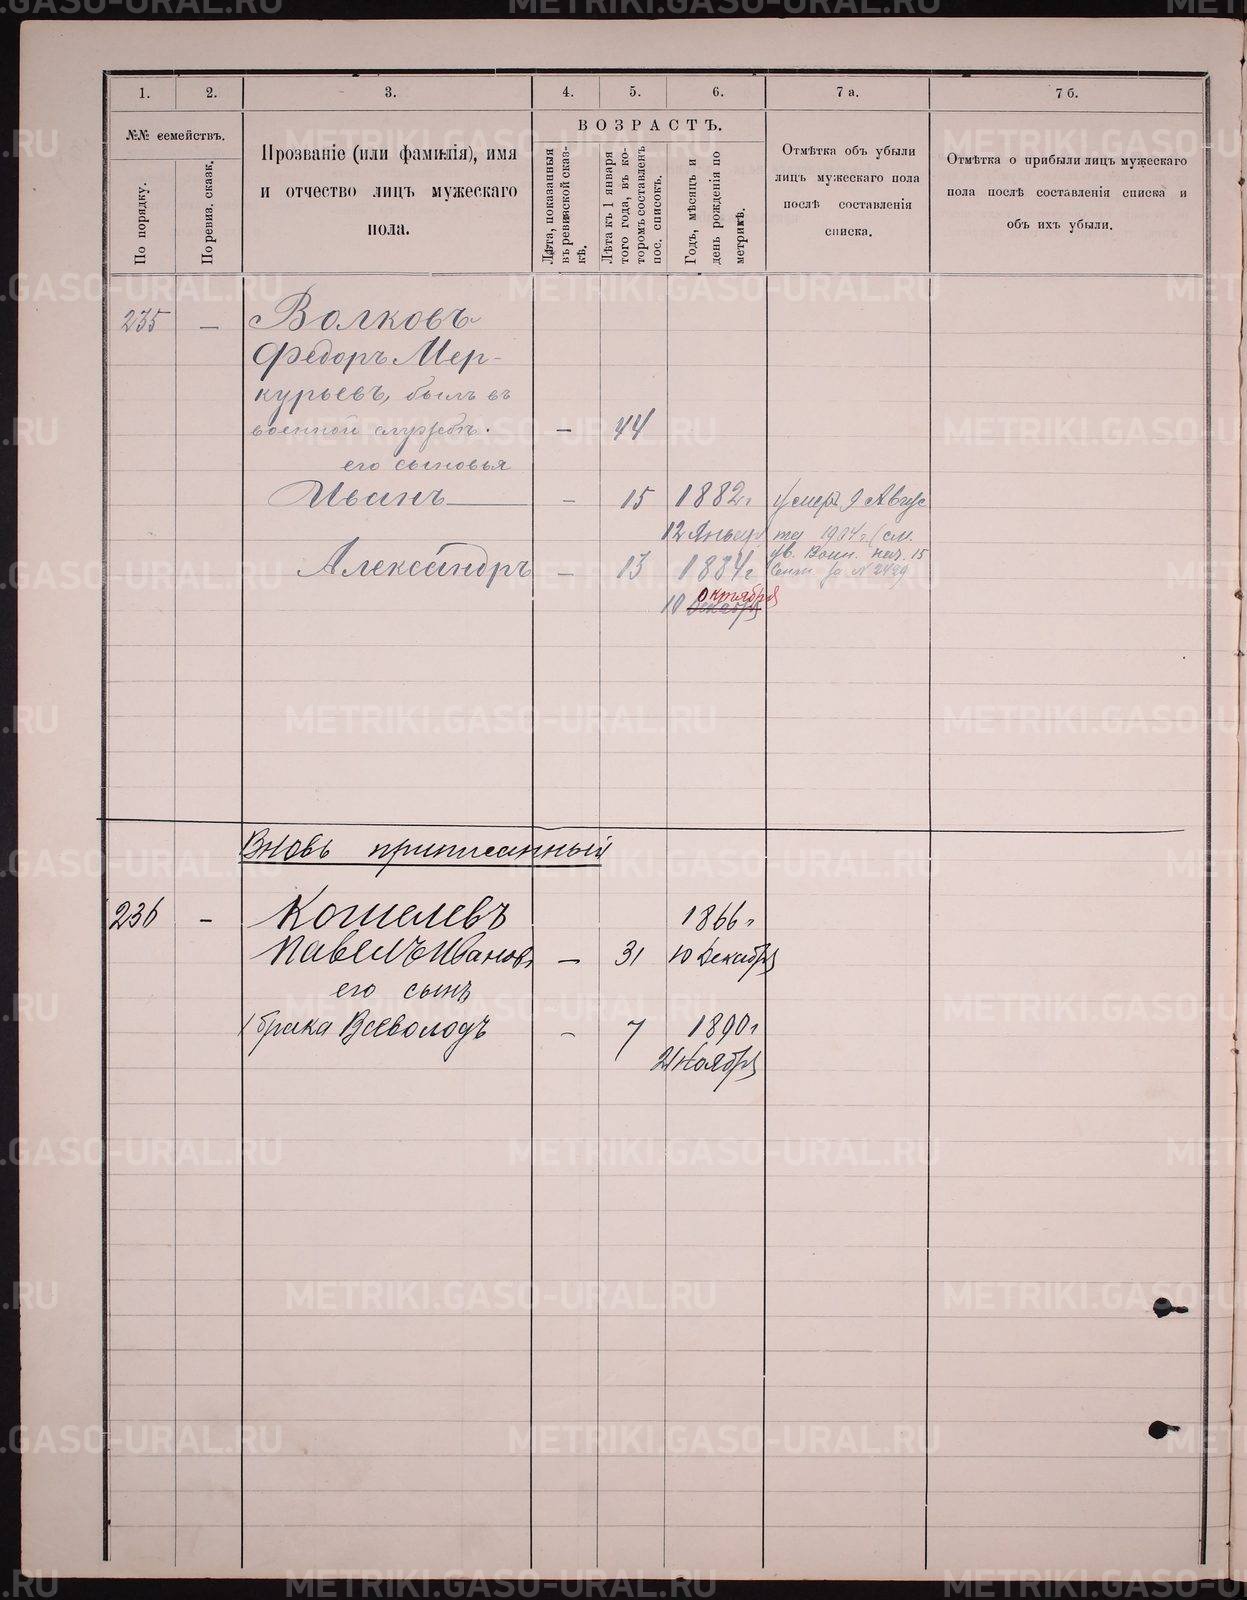 1.
2.
3.
4.
5.
6.
7 а.
7 б.
№№ семействъ.
По порядку.
По ревиз. сказк.
Прозваніе (или фамилія), имя
и отчество лицъ мужескаго
пола.
ВОЗРАСТЪ.
Лѣта, показанныя
въ ревизской сказ-
кѣ.
Лѣта къ 1 января
того года, въ ко-
торомъ составленъ
пос. списокъ.
Годъ, мѣсяцъ и
день рожденія по
метрикѣ.
Отмѣтка объ убыли
лицъ мужескаго пола
послѣ составленія
списка.
Отмѣтка о прибыли лицъ мужескаго
пола послѣ составленія списка и
объ ихъ убыли.
235 — Волковъ
Федоръ Мер-
курьевъ, былъ въ
военной службѣ. — 44
его сыновья
Иванъ — 15 1882 г. Умеръ 9 Авгус
12 Январ та 1904 г. (см.
Александръ — 13 1884 г. ув. Воин. нач. 15
Сент. за № 2429
октября
10 Декабря
Вновь приписанный
236 — Кошелевъ 1866 г.
Павелъ Иванов. — 31 10 Декабря
его сынъ
1 брака Всеволодъ — 7 1890 г.
21 Ноября
METRIKI.GASO-URAL.RU